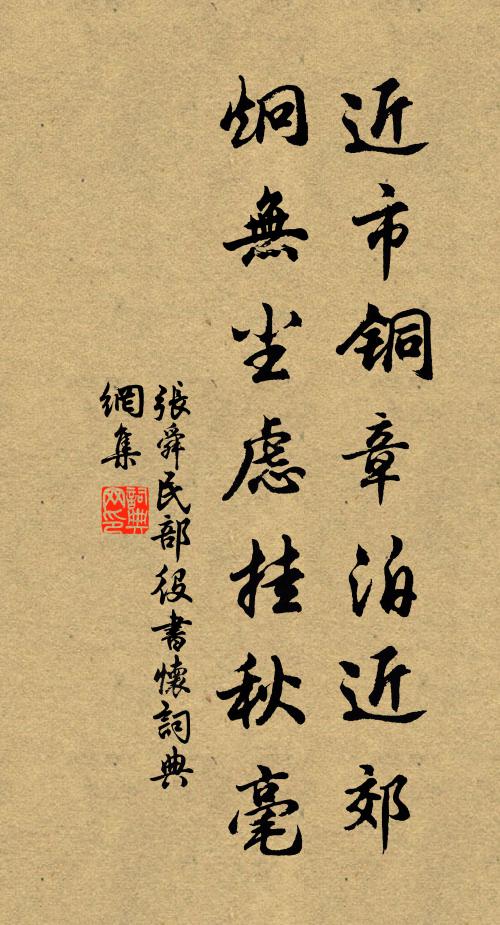 近市铜章泊近郊
炯無尘虑挂秋毫
張舜民部役書懷詞典
網集
詞典
网印